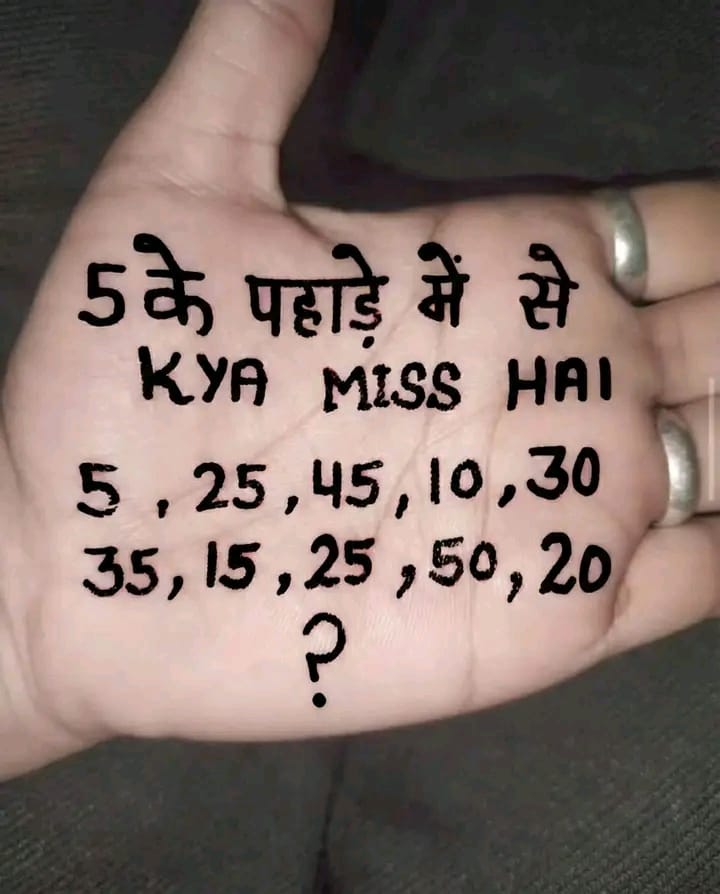 5 के पहाड़े में से
KYA MISS HAI
5 , 25 , 45 , 10 , 30
35 , 15 , 25 , 50 , 20
?